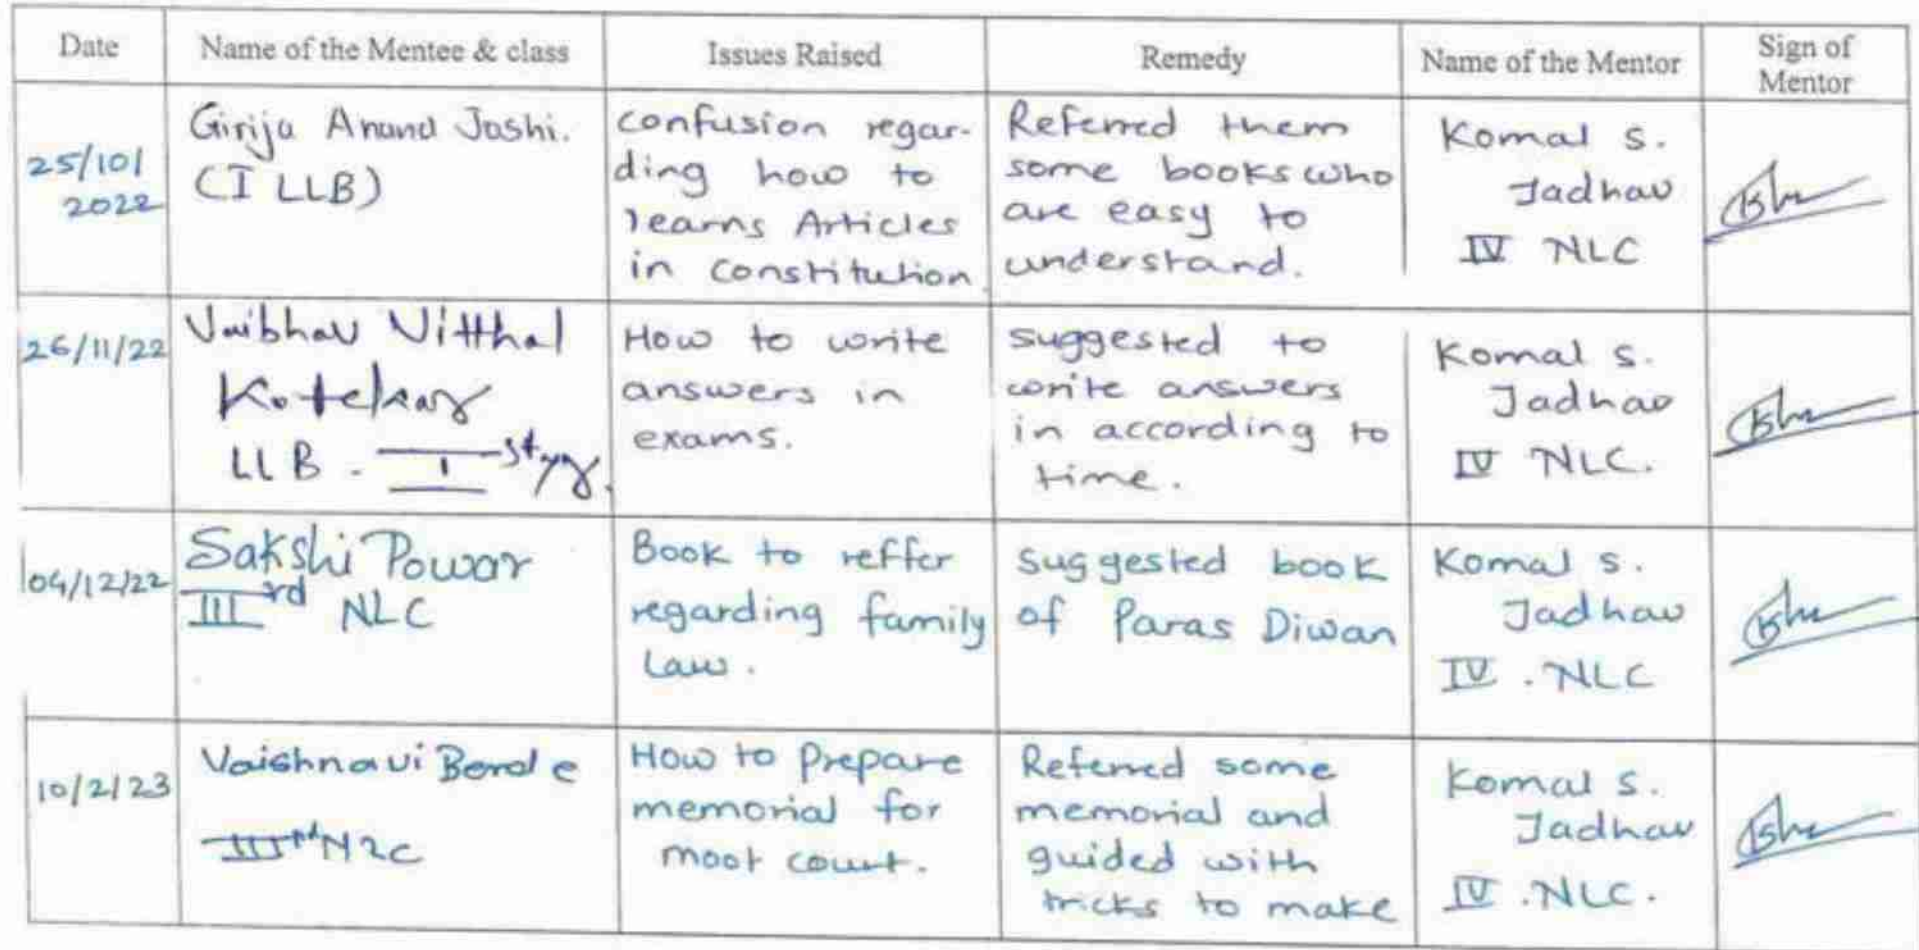 Date
Name of the Mentee & class
Issues Raised
Remedy
Name of the Mentor
Sign of
Mentor
25/10/
2022
Girija Anand Joshi.
(I LLB)
confusion regar-
ding how to
learns Articles
in constitution
Referred them
some books who
are easy to
understand.
Komal S.
Jadhav
IV NLC
26/11/22
Vaibhav Vitthal
Kotekar
LLB. I st yr.
How to write
answers in
exams.
suggested to
write answers
in according to
time.
Komal S.
Jadhav
IV NLC.
04/12/22
Sakshi Powar
III rd NLC
Book to reffer
regarding family
Law.
Suggested book
of Paras Diwan
Komal S.
Jadhav
IV . NLC
10/2/23
Vaishnavi
III rd NLC
How to Prepare
memorial for
moot court.
Referred some
memorial and
guided with
tricks to make
Komal S.
Jadhav
IV . NLC.